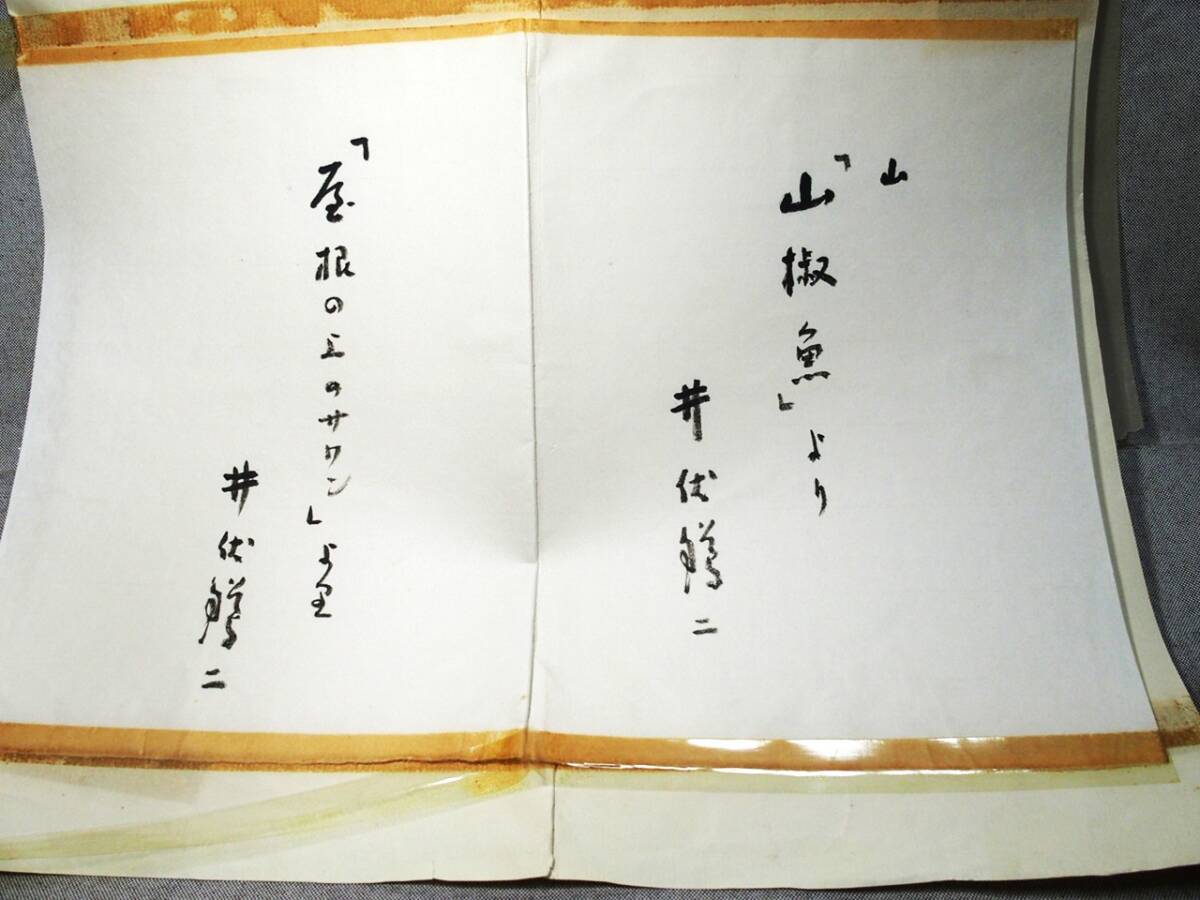 山
「山椒魚」より
井伏鱒二
「屋根の上のサワン」より
井伏鱒二